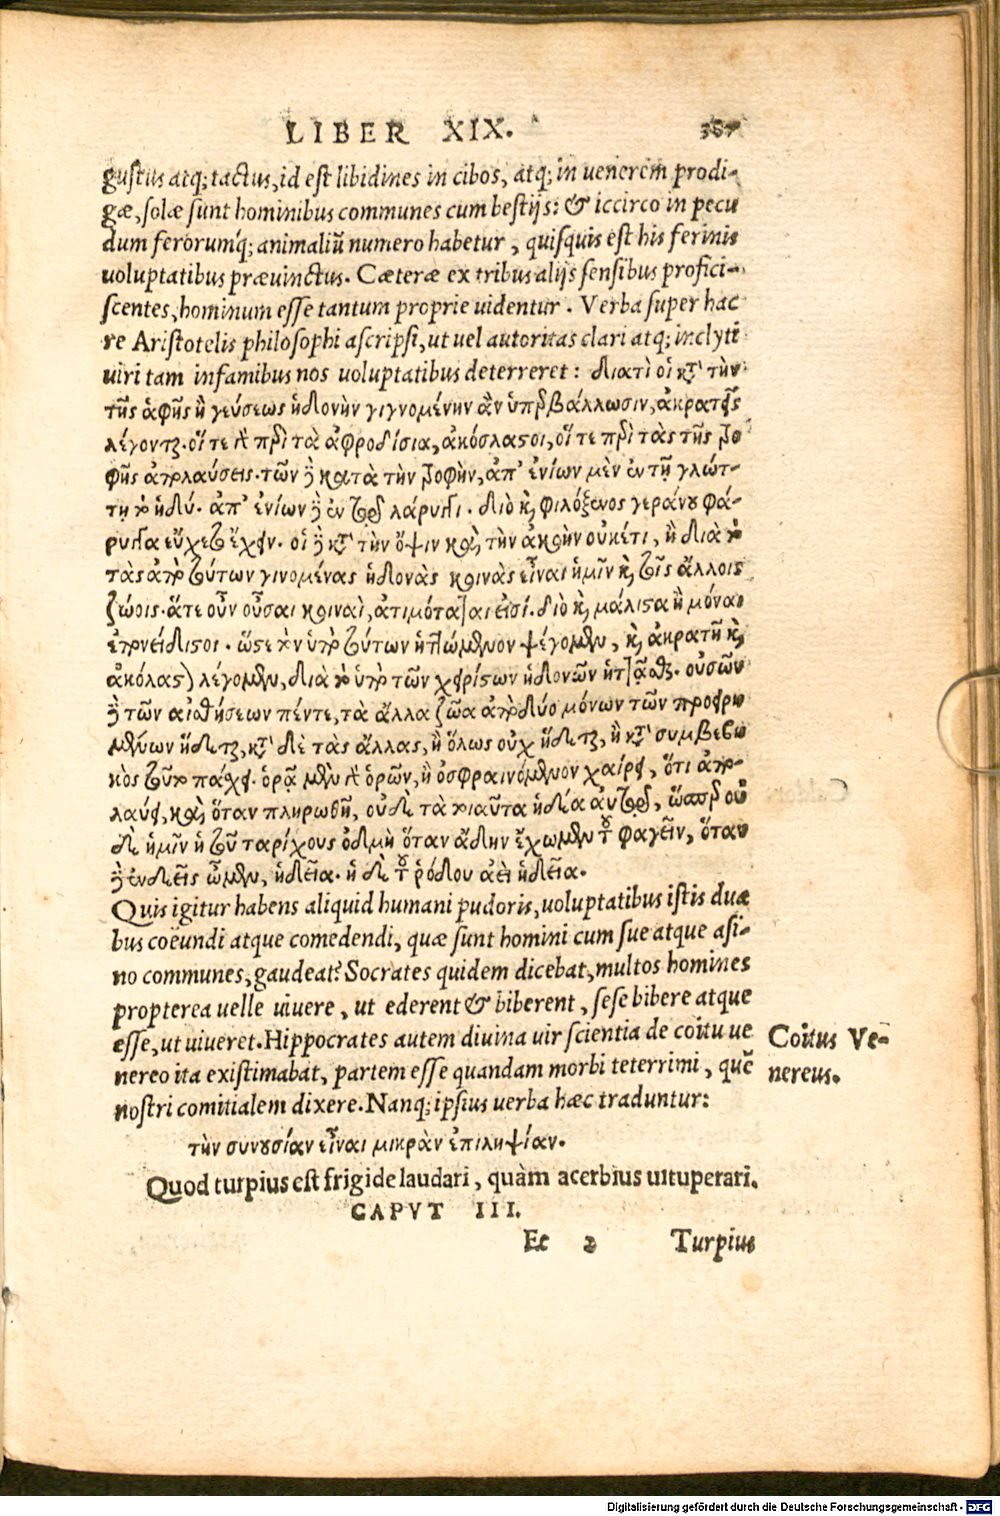 LIBER XIX. 387
gustus atq; tactus, id est libidines in cibos, atq; in uenerem prodi-
gæ, solæ sunt hominibus communes cum bestijs: & iccirco in pecu
dum ferorumq́; animaliū numero habetur, quisquis est his ferinis
uoluptatibus præuinctus. Cæteræ ex tribus alijs sensibus profici-
scentes, hominum esse tantum proprie uidentur. Verba super hac
re Aristotelis philosophi ascripsi, ut uel autoritas clari atq; inclyti
uiri tam infamibus nos uoluptatibus deterreret: διατὶ οἱ κτ̀ τὴν
τῆς ἁφῆς ἢ γεύσεως ἡδονὴν γιγνομένην ἂν ὑπερβάλλωσιν, ἀκρατεῖς
λέγονται. οἵ τε γὰρ περὶ τὰ ἀφροδίσια, ἀκόλαστοι, οἵ τε περὶ τὰς τῆς τρο
φῆς ἀπολαύσεις. τῶν δὲ κατὰ τὴν τροφὴν, ἀπ' ἐνίων μὲν ἐν τῇ γλώτ-
τῃ τὸ ἡδύ. ἀπ' ἐνίων δὲ ἐν τῷ λάρυγγι. διὸ καὶ φιλόξενος γεράνου φά-
ρυγγα εὔχετο ἔχειν. οἱ δὲ κτ̀ τὴν ὄψιν καὶ τὴν ἀκοὴν οὐκέτι, ἢ διὰ τὸ
τὰς ἀπὸ τούτων γινομένας ἡδονὰς κοινὰς εἶναι ἡμῖν καὶ τοῖς ἄλλοις
ζώοις. ἅτε οὖν οὖσαι κοιναὶ, ἀτιμόταταί εἰσι. διὸ καὶ μάλιστα ἢ μόναι
ἐπονείδιστοι. ὥστε τὸν ὑπὸ τούτων ἡττώμενον ψέγομεν, καὶ ἀκρατῆ καὶ
ἀκόλαστον λέγομεν, διὰ τὸ ὑπὸ τῶν χειρίστων ἡδονῶν ἡττᾶσθαι. οὐσῶν
δὲ τῶν αἰσθήσεων πέντε, τὰ ἄλλα ζῶα ἀπὸ δύο μόνων τῶν προειρη
μένων ἥδεται, κτ̀ δὲ τὰς ἄλλας, ἢ ὅλως οὐχ ἥδεται, ἢ κτ̀ συμβεβη
κὸς τοῦτο πάσχει. ὁρᾷ μὲν γὰρ ὁρῶν, ἢ ὀσφραινόμενον χαίρει, ὅτι ἀπο-
λαύει, καὶ ὅταν πληρωθῇ, οὐδὲ τὰ τοιαῦτα ἡδέα αὐτῷ, ὥσπερ οὐ
δὲ ἡμῖν ἡ τοῦ ταρίχους ὀδμὴ ὅταν ἅδην ἔχωμεν τοῦ φαγεῖν, ὅταν
δὲ ἐνδεεῖς ὦμεν, ἡδεῖα. ἡ δὲ τοῦ ῥόδου ἀεὶ ἡδεῖα.
Quis igitur habens aliquid humani pudoris, uoluptatibus istis duæ
bus coëundi atque comedendi, quæ sunt homini cum sue atque asi-
no communes, gaudeat? Socrates quidem dicebat, multos homines
propterea uelle uiuere, ut ederent & biberent, sese bibere atque
esse, ut uiueret. Hippocrates autem diuina uir scientia de coitu ue
nereo ita existimabat, partem esse quandam morbi teterrimi, quē
nostri comitialem dixere. Nanq; ipsius uerba hæc traduntur:
τὴν συνουσίαν εἶναι μικρὰν ἐπιληψίαν.
Coitus Ve-
nereus.
Quod turpius est frigide laudari, quàm acerbius uituperari.
CAPVT III.
Ee 2 Turpius
Digitalisierung gefördert durch die Deutsche Forschungsgemeinschaft - DFG